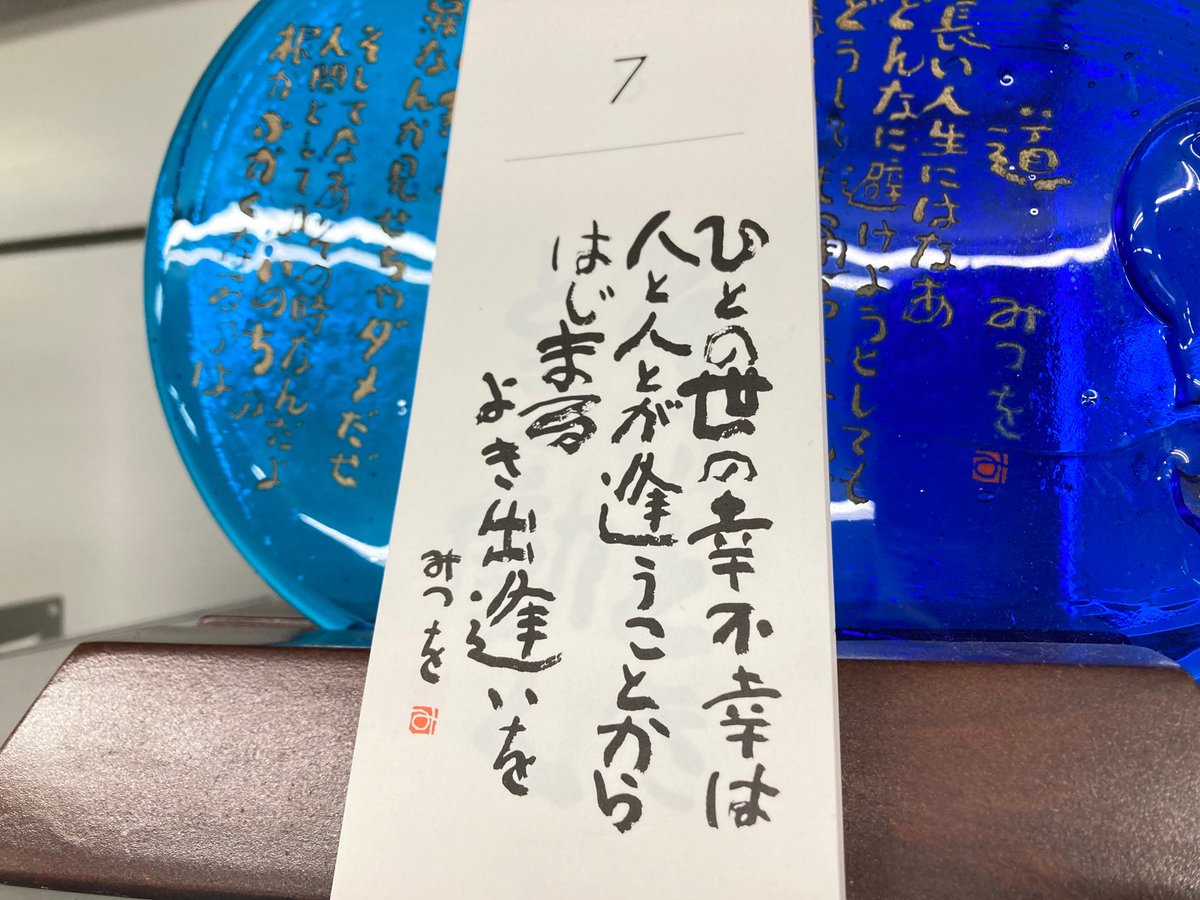 7
ひとの世の幸不幸は
人と人とが逢うことから
はじまる
よき出逢いを
みつを
道
みつを
長い人生にはなあ
どんなに避けようとしても
どうして
なんか見せちゃダメだぜ
そしてなあ その時なんだよ
人間としての いのちの
根がふかくなるのは